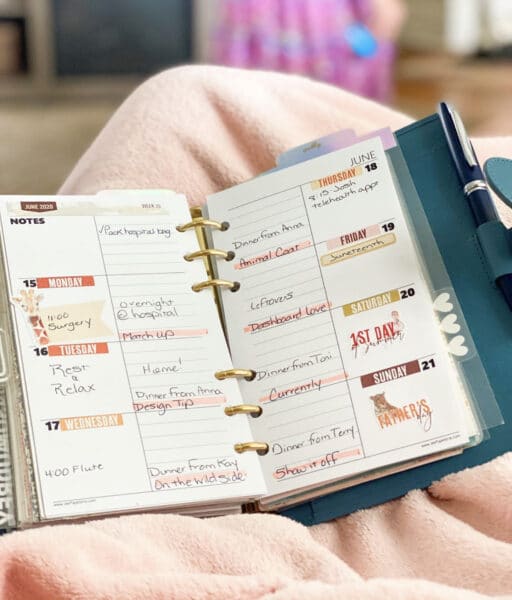 JUNE 2020
WEEK 25
NOTES
✓Pack hospital bag
15 MONDAY
11:00
Surgery
overnight
@ hospital
Match Up
16 TUESDAY
Rest
&
Relax
Home!
Dinner from Anna
Design Tip
17 WEDNESDAY
4:00 Flute
Dinner from Kay
On the Wild Side
JUNE
THURSDAY 18
Dinner from Anna
Animal Coat
8:15 Josh
telehealth appt
FRIDAY 19
Leftovers
Dashboard Love
Juneteenth
SATURDAY 20
Dinner from Toni
Currently
1ST DAY
of summer
SUNDAY 21
Dinner from Terry
Show it off
FATHER'S